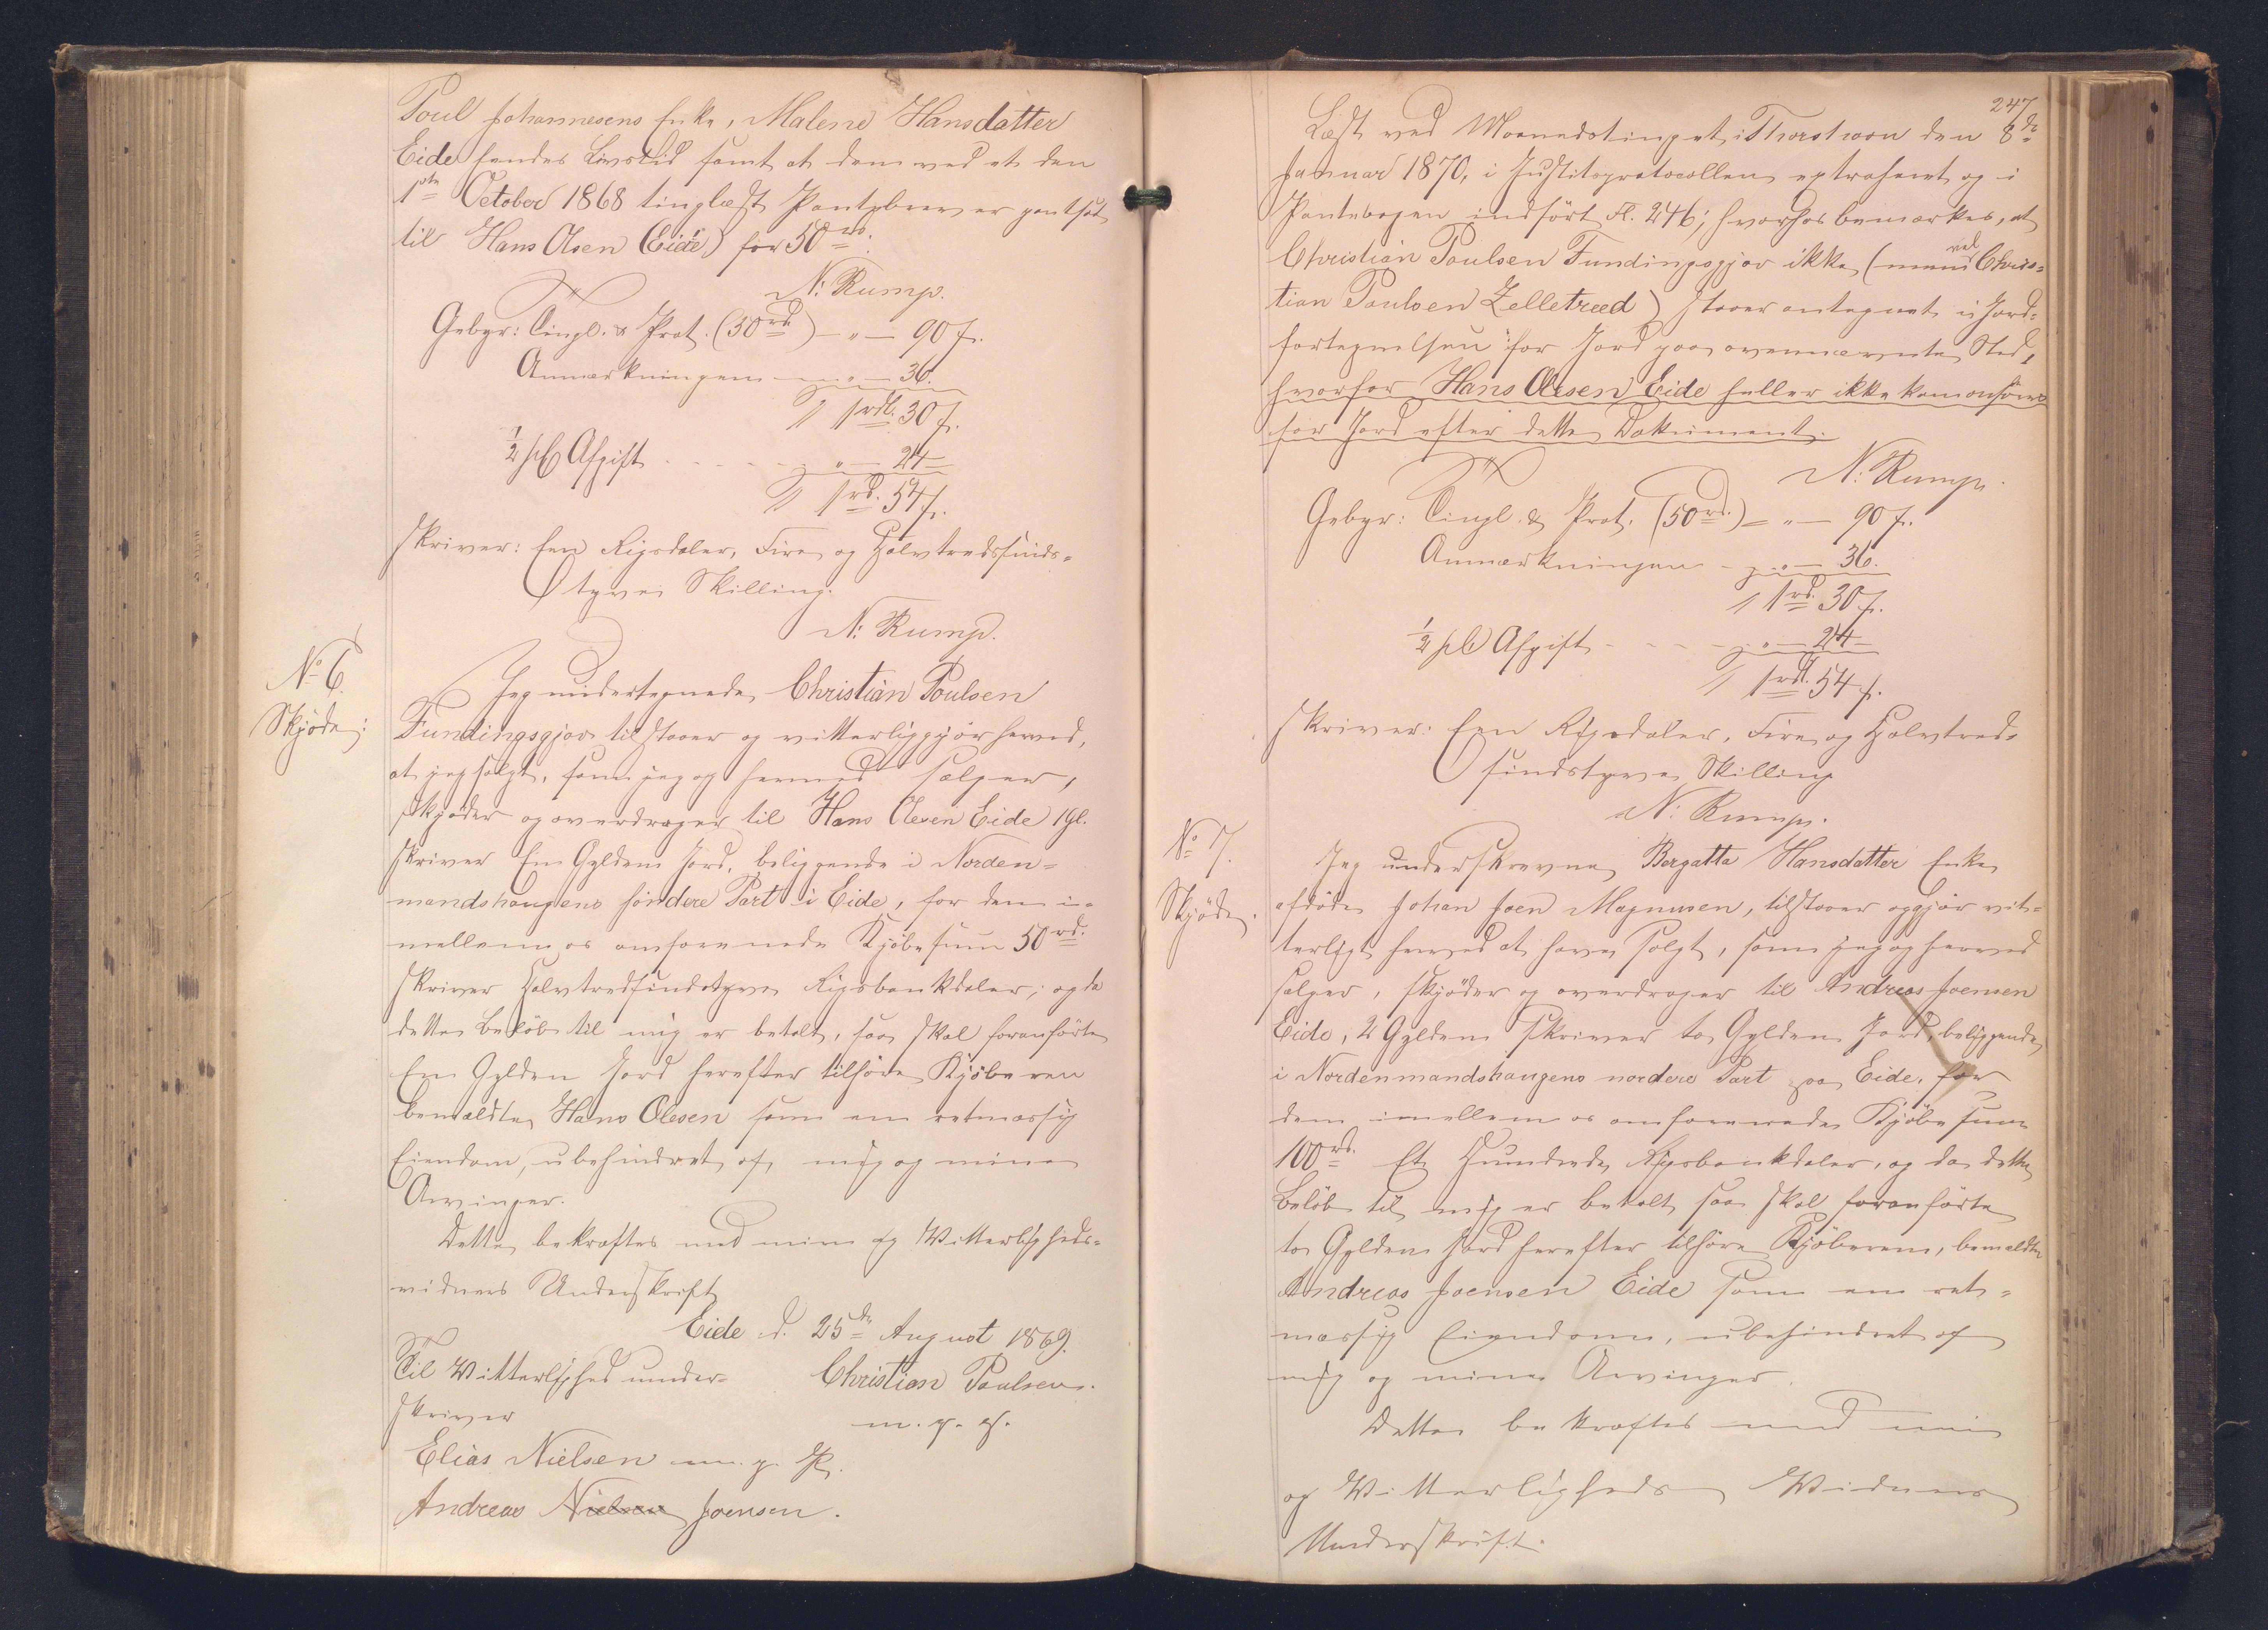 Poul Johannesens Enke, Malene Hansdatter
Eide hendes Livstid samt at dem ved et den
1ste October 1868 tinglæst Pantebrev er pantsat
til Hans Olsen (Eide) for 50 rd.
N: Rump.
Gebyr: Tingl. & Prot. (50 rd) – " – 90 s.
Anmærkningen – " – 36.
1 rdl. 30 s.
½ pC Afgift . . . . " – 24
1 rd. 54 s.
skriver: Een Rigsdaler, Fire og Halvtredsinds-
tyve Skilling.
N: Rump.
No 6.
Skjøde:
Jeg undertegnede, Christian Poulsen
Fundingsgjov tilstaaer og vitterliggjør herved,
at jeg solgt, som jeg og hermed sælger,
skjøder og overdrager til Hans Olesen Eide 1 gl.
skriver Een Gylden Jord, beliggende i Norden-
mandshaugens søndere Part i Eide, for den i-
mellem os omforenede Kjøbesum 50 rd.
skriver Halvtredsindstyve Rigsbankdaler; og da
dette Beløb til mig er betalt, saa skal foranførte
Een Gylden Jord herefter tilhøre Kjøberen
bemældte Hans Olesen som en retmæssig
Eiendom, ubehindret af mig og mine
Arvinger.
Dette bekræftes med min og Witterligheds-
vidners Underskrift
Eide d. 25de August 1869.
Til Witterlighed under-
skriver
Christian Poulsen.
m. p. P.
Elias Nielsen m. p. P.
Andreas Nielsen Joensen.
247
Læst ved Maanedstinget i Thorshavn den 8de
Januar 1870, i Justitsprotocollen extraheret og i
Pantebogen indført Fl. 246; hvorhos bemærkes, at
Christian Poulsen Fundingsgjov ikke (men vel Chris-
tian Poulsen Zelletræd) staaer antegnet i Jord-
fortegnelsen for Jord paa ovennævnte Sted,
hvorfor Hans Olesen Eide heller ikke kan anføres
for Jord efter dette Dokument.
N: Rump.
Gebyr: Tingl. & Prot. (50 rd.) – " – 90 s.
Anmærkningen – " – 36.
1 rd. 30 s.
½ pC Afgift – – – " – 24
1 rd. 54 s.
skriver: Een Rigsdaler, Fire og Halvtred-
sindstyve Skilling
N: Rump.
No 7.
Skjøde.
Jeg underskrevne, Bergatta Hansdatter Enke
afdøde Johan Joen Magnusen, tilstaaer og gjør vit-
terligt herved at have solgt, som jeg og herved
sælger, skjøder og overdrager til Andreas Joensen
Eide, 2 Gylden skriver to Gylden Jord, beliggende
i Nordenmandshaugens nordere Part paa Eide, for
den imellem os omforenede Kjøbesum
100 rd. Et Hundrede Rigsbankdaler, og da dette
Beløb til mig er betalt saa skal foranførte
to Gylden Jord herefter tilhøre Kjøberen, bemældte
Andreas Joensen Eide som en ret-
mæssig Eiendom, ubehindret af
mig og mine Arvinger.
Dette bekræftes med min
og Witterligheds Widners
Underskrift.